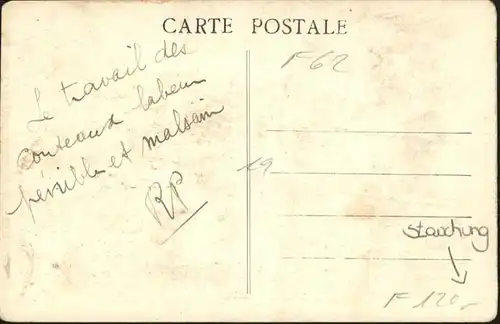 CARTE POSTALE
Le travail des
couteaux labeur
pénible et malsain
RP
F62
19
Stauchung
F 120,-